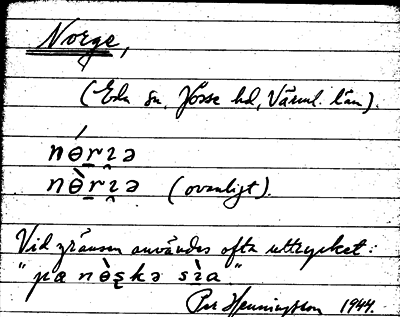 Norge,
(Eda sn, Jösse hd, Värml. län).
nɵ́r̠ɿ̯ə
nɵ̀r̠ɿ̯ə (ovanligt).
Vid gränsen användes ofta uttrycket:
"pa nɵ̀s̨kə sìa."
Per Henningsson 1944.